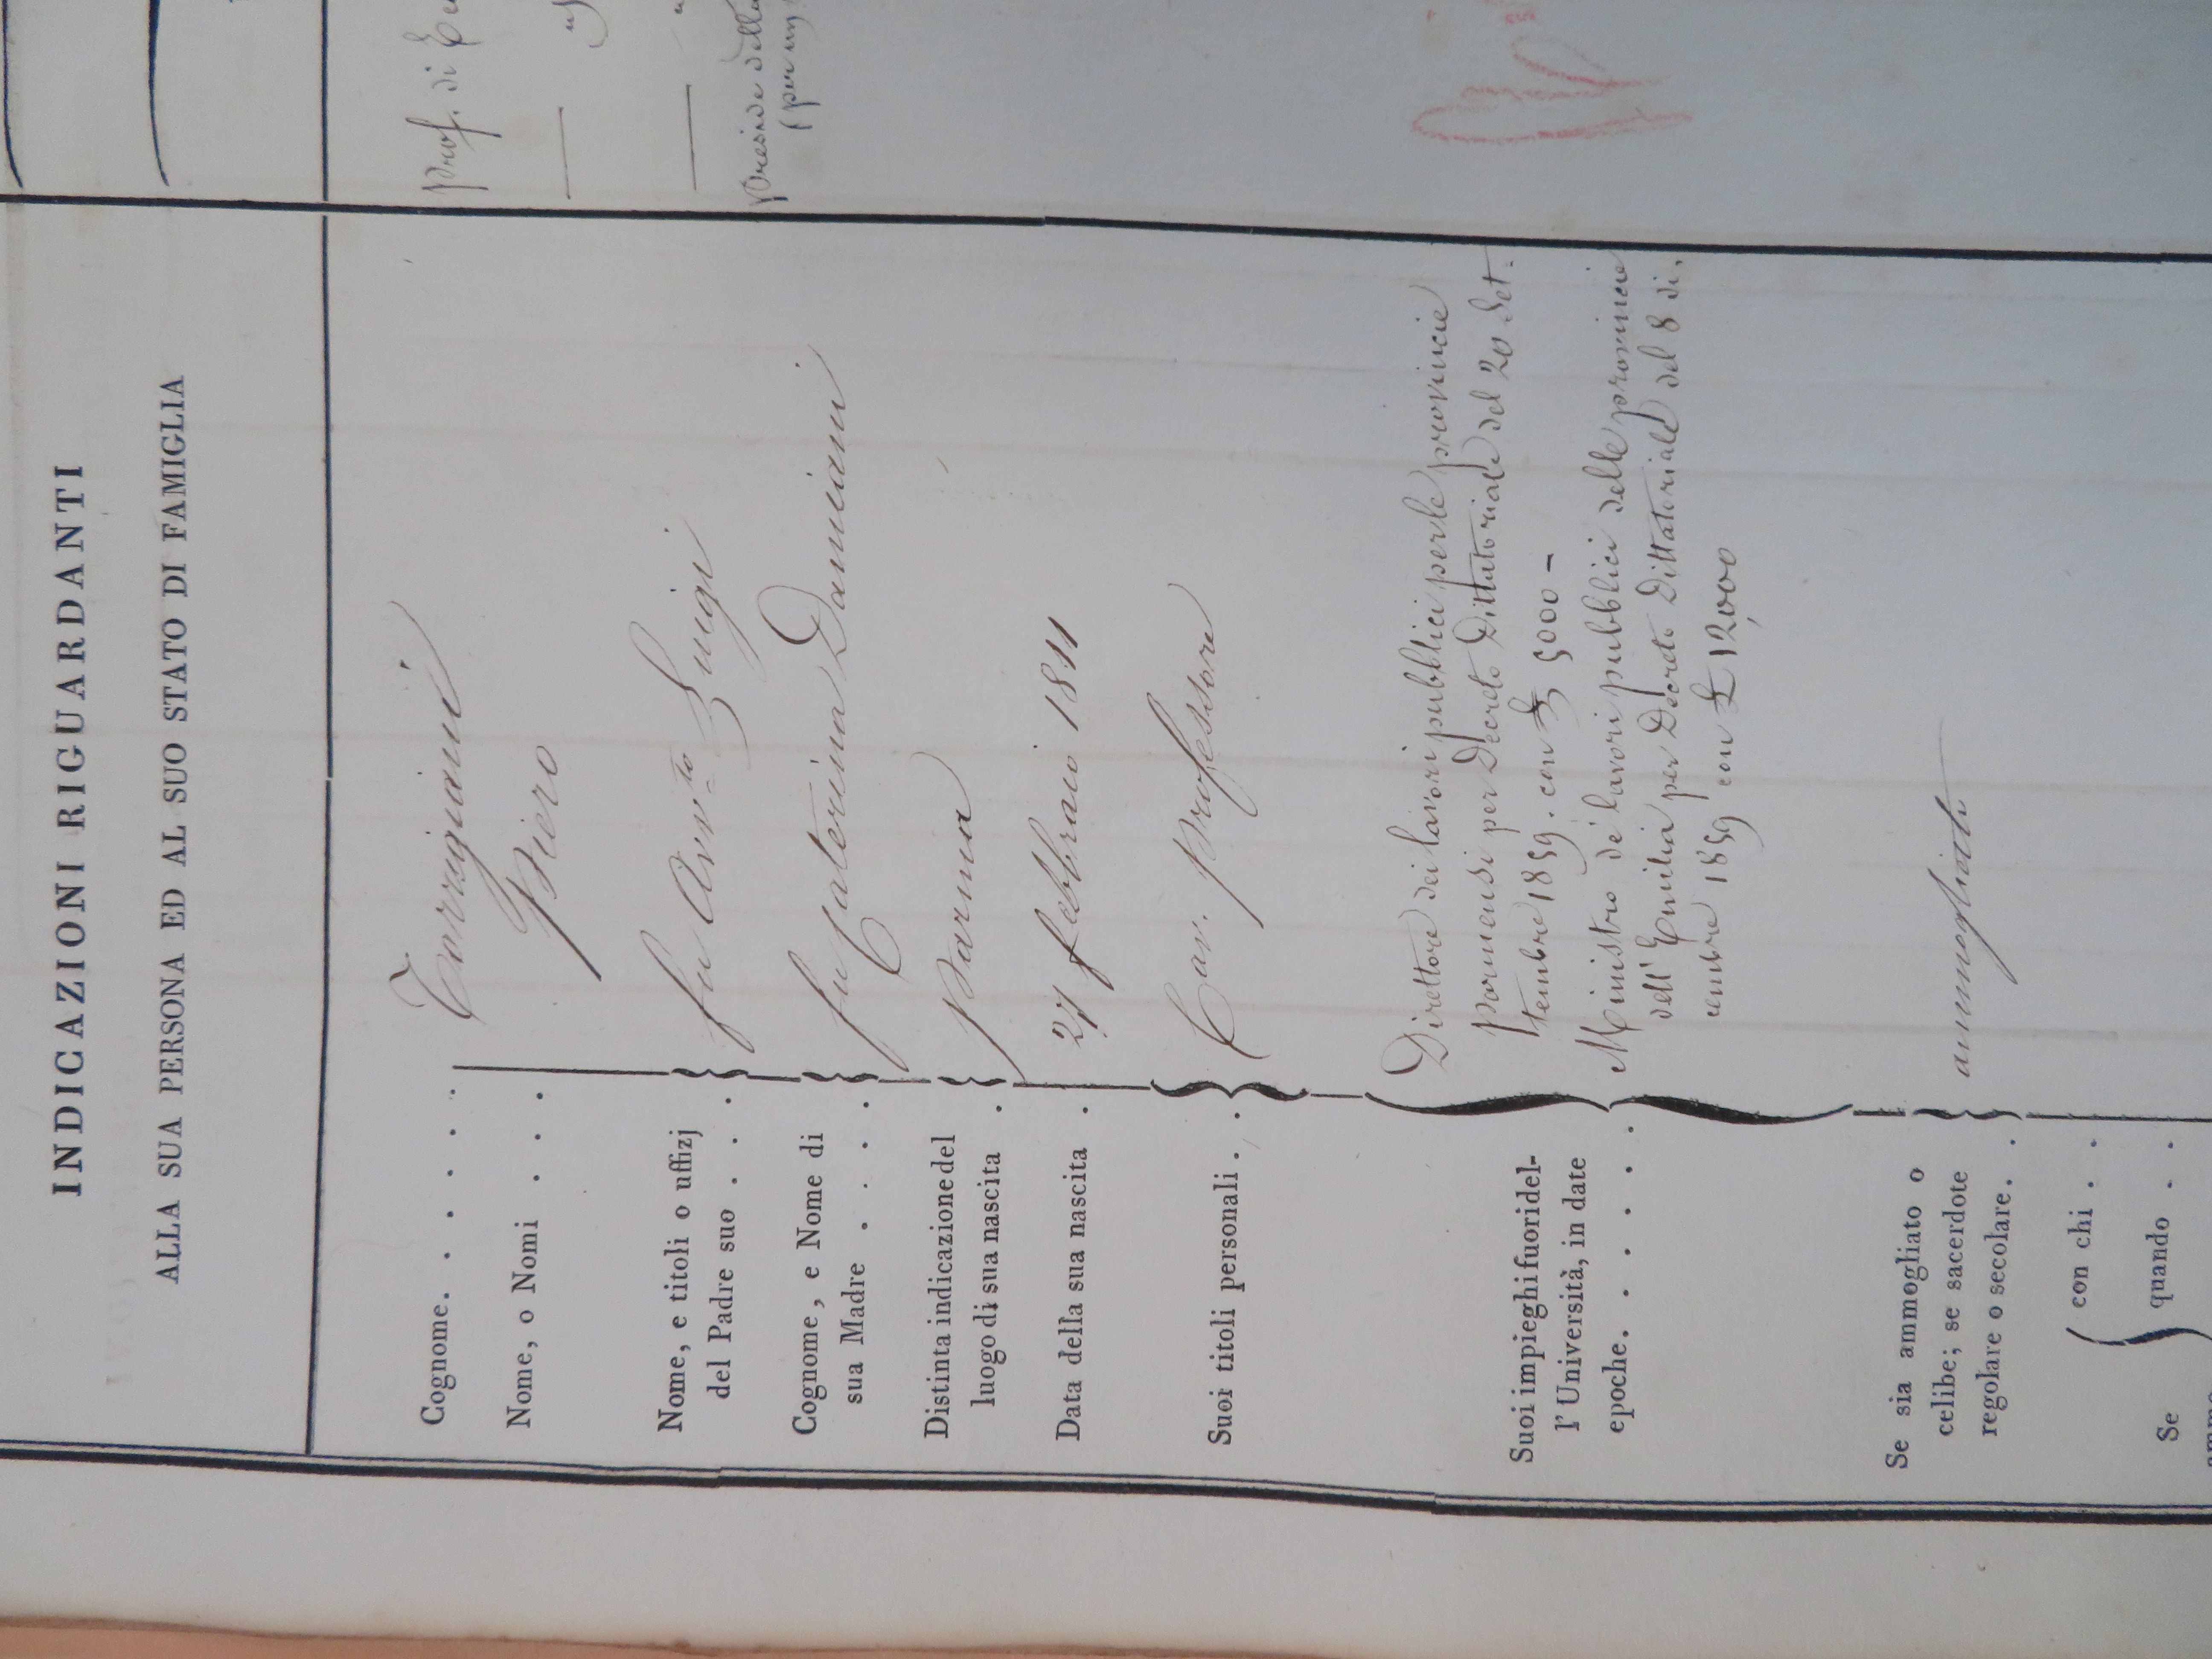 INDICAZIONI RIGUARDANTI
ALLA SUA PERSONA ED AL SUO STATO DI FAMIGLIA
Cognome. . . . . . Torrigiani
Nome, o Nomi . . . Piero
Nome, e titoli o uffizj
del Padre suo . . . fu Avv.to Luigi
Cognome, e Nome di
sua Madre . . . . fu Caterina Damiani
Distinta indicazione del
luogo di sua nascita . Parma
Data della sua nascita . 27 febbraio 1811
Suoi titoli personali . . Cav. Professore
Suoi impieghi fuori del-
l' Università, in date
epoche. . . . . .
Direttore dei lavori pubblici per le provincie
parmensi per Decreto Dittatoriale del 20 Set-
tembre 1859. con £ 5000 -
Ministro de' lavori pubblici delle provincie
dell' Emilia per Decreto Dittatoriale del 8 di,
cembre 1859 con £ 12,000
Se sia ammogliato o
celibe; se sacerdote
regolare o secolare. . ammogliato
con chi . .
Se
quando . .
Prof. di
Preside della
(per